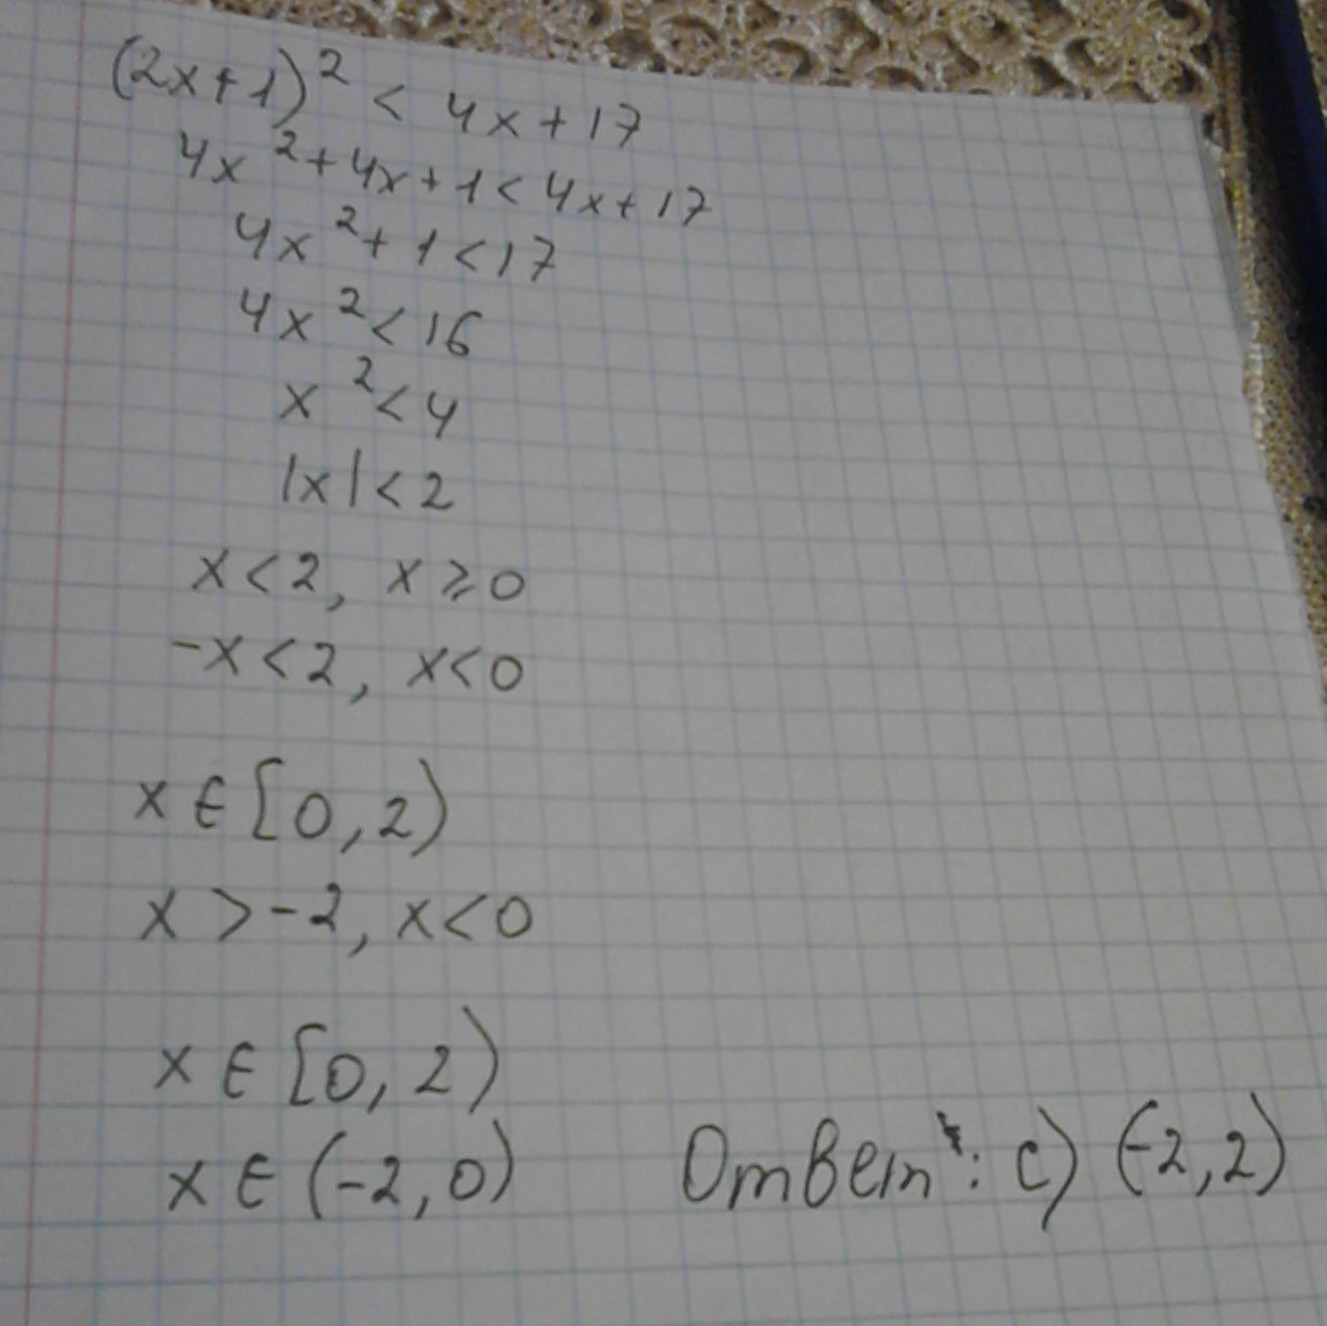 (2x+1)² < 4x+17
4x²+4x+1<4x+17
4x²+1<17
4x²<16
x²<4
|x|<2
x<2, x⩾0
-x<2, x<0
x∈[0,2)
x>-2, x<0
x∈[0,2)
x∈(-2,0) Ответ: c) (-2,2)